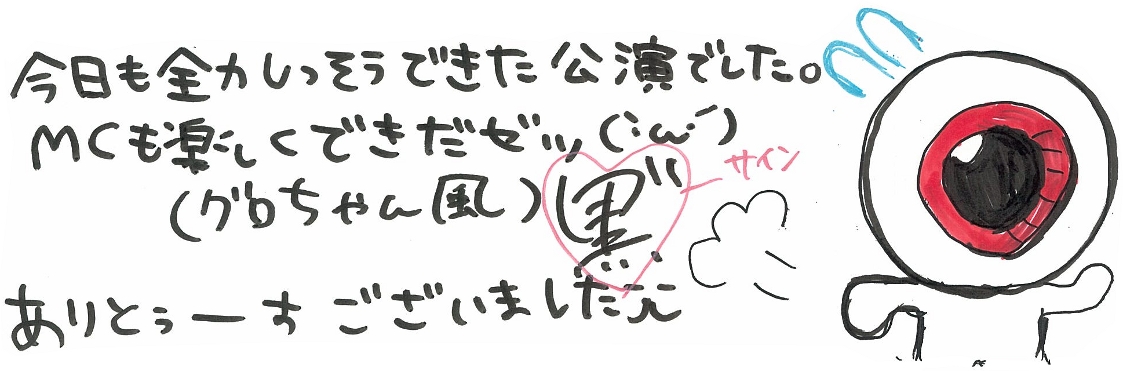 今日も全力しっそうできた公演でした。
MCも楽しくできたゼッ(・ω・´)
(グロちゃん風)
サイン
ありとぅーすございました